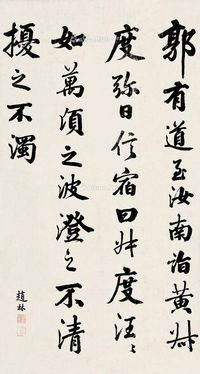 郭有道至汝南詣黃叔
度弥日信宿曰叔度汪〻
如萬頃之波澄之不清
擾之不濁
趙林